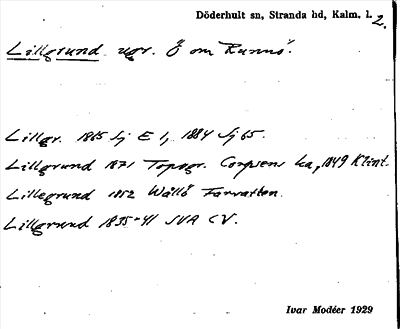 Döderhult sn, Stranda hd, Kalm. l. 2.
Lillgrund ugr. Ö om Runnö.
Lillgr. 1865 Sj E 1, 1884 Sj 65.
Lillgrund 1871 Topogr. Corpsens ka, 1849 Klint.
Lillegrund 1852 Wållö Farvatten.
Lillgrund 1835-41 SVA CV.
Ivar Modéer 1929